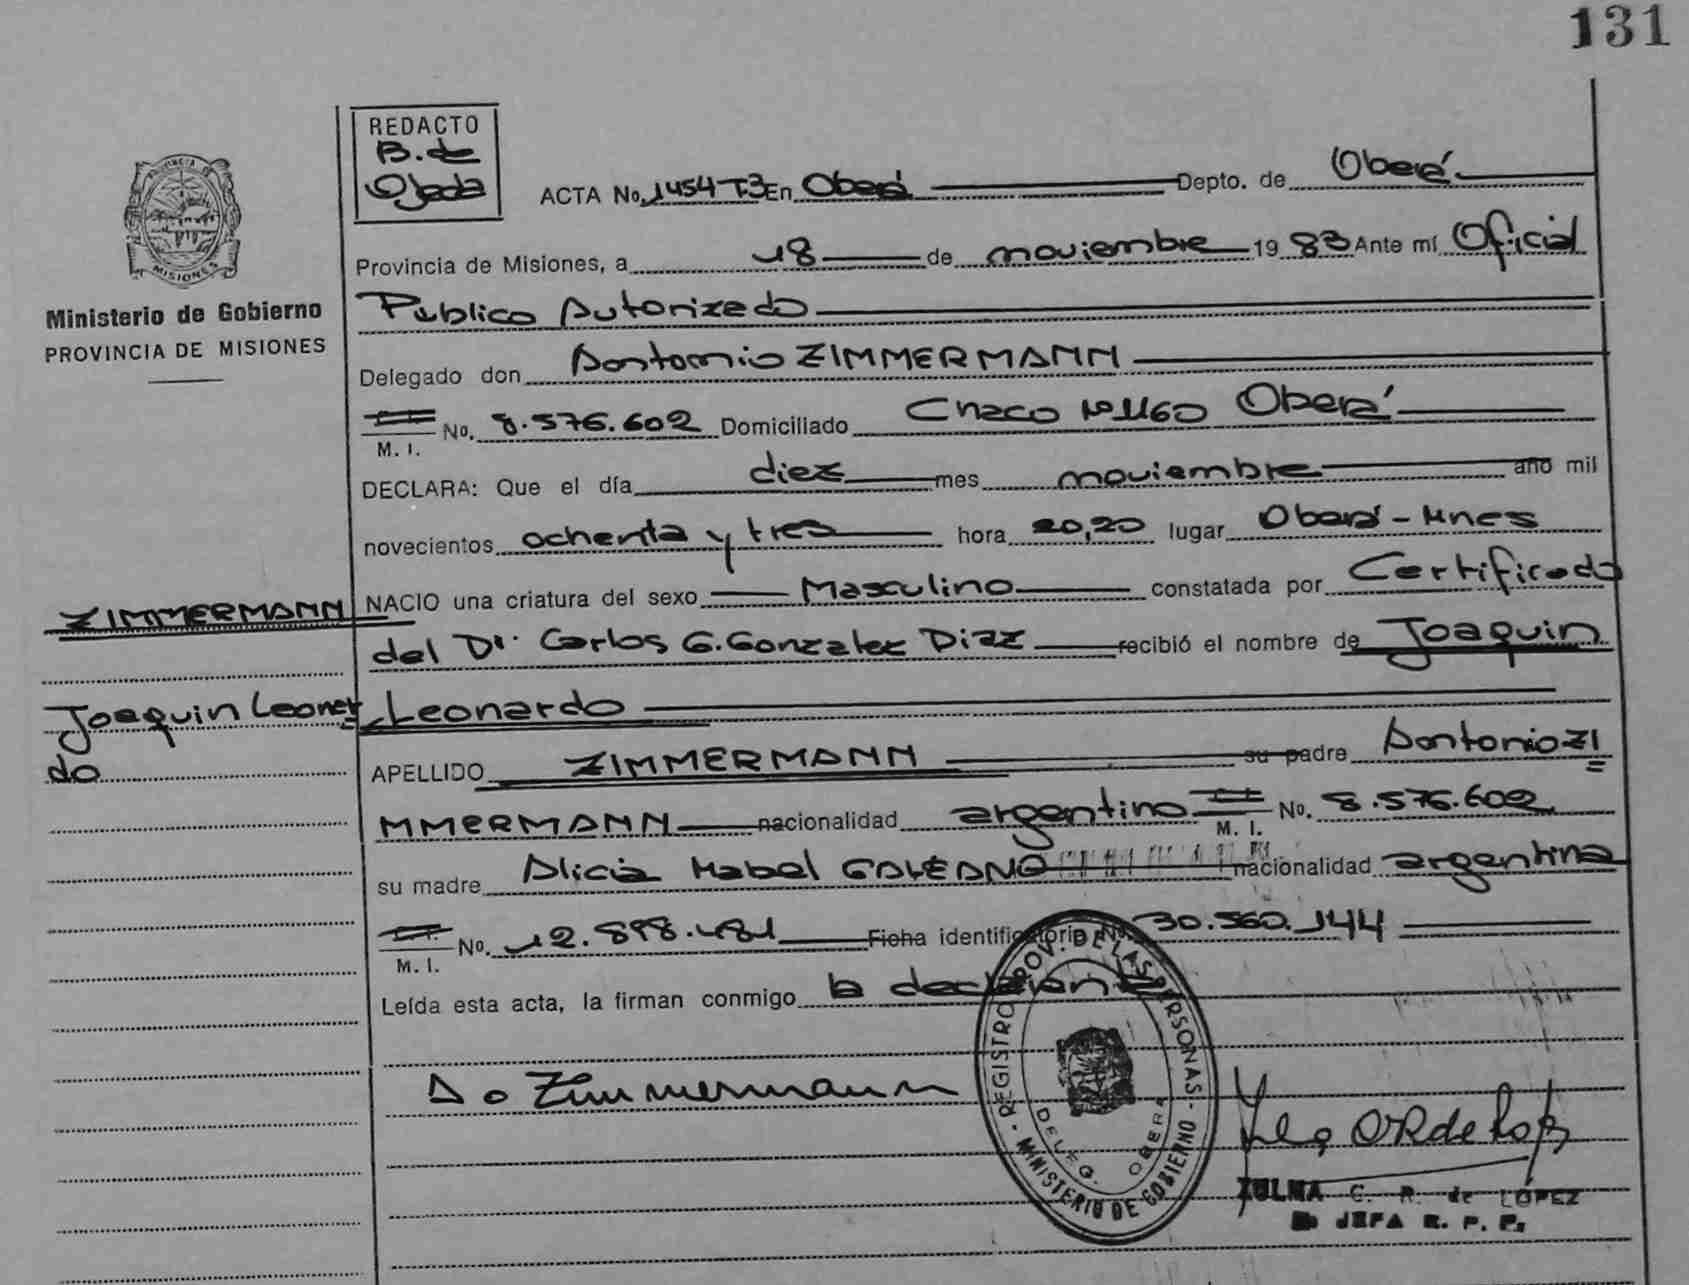 131
REDACTO
B. de
Ojeda
ACTA No. 1454 T.3 En Oberá Depto. de Oberá
Provincia de Misiones, a 18 de noviembre 19 83 Ante mí Oficial
Publico Autorizado
Delegado don Antonio ZIMMERMANN
No. 8.576.602 Domiciliado Chaco Nº 1160 Oberá
M. I.
DECLARA: Que el día diez mes noviembre año mil
novecientos ochenta y tres hora 20,20 lugar Oberá - Mnes
NACIO una criatura del sexo Masculino constatada por Certificado
del Dr. Carlos G. Gonzalez Diaz recibió el nombre de Joaquin
Leonardo
APELLIDO ZIMMERMANN su padre Antonio ZI
MMERMANN nacionalidad argentino M. I. No. 8.576.602
su madre Alicia Mabel GALEANO nacionalidad argentina
M. I. No. 12.898.481 Ficha identificatoria No. 30.560.144
Leída esta acta, la firman conmigo la declarante
PROVINCIA DE MISIONES
Ministerio de Gobierno
PROVINCIA DE MISIONES
ZIMMERMANN
Joaquin Leonar
do
Zimmermann
REGISTRO PROV. DE LAS PERSONAS - MINISTERIO DE GOBIERNO -
DELEG. OBERA
ZULMA C. R. de LOPEZ
JEFA R. P. P.